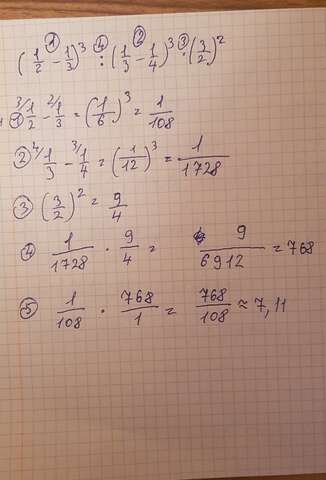 (1/2 - 1/3)³ : (1/3 - 1/4)³ · (3/2)²
① ³⁄1/2 - ²⁄1/3 = (1/6)³ = 1/108
② ⁴⁄1/3 - ³⁄1/4 = (1/12)³ = 1/1728
③ (3/2)² = 9/4
④ 1/1728 · 9/4 = 9/6912 = 768
⑤ 1/108 · 768/1 = 768/108 ≈ 7,11